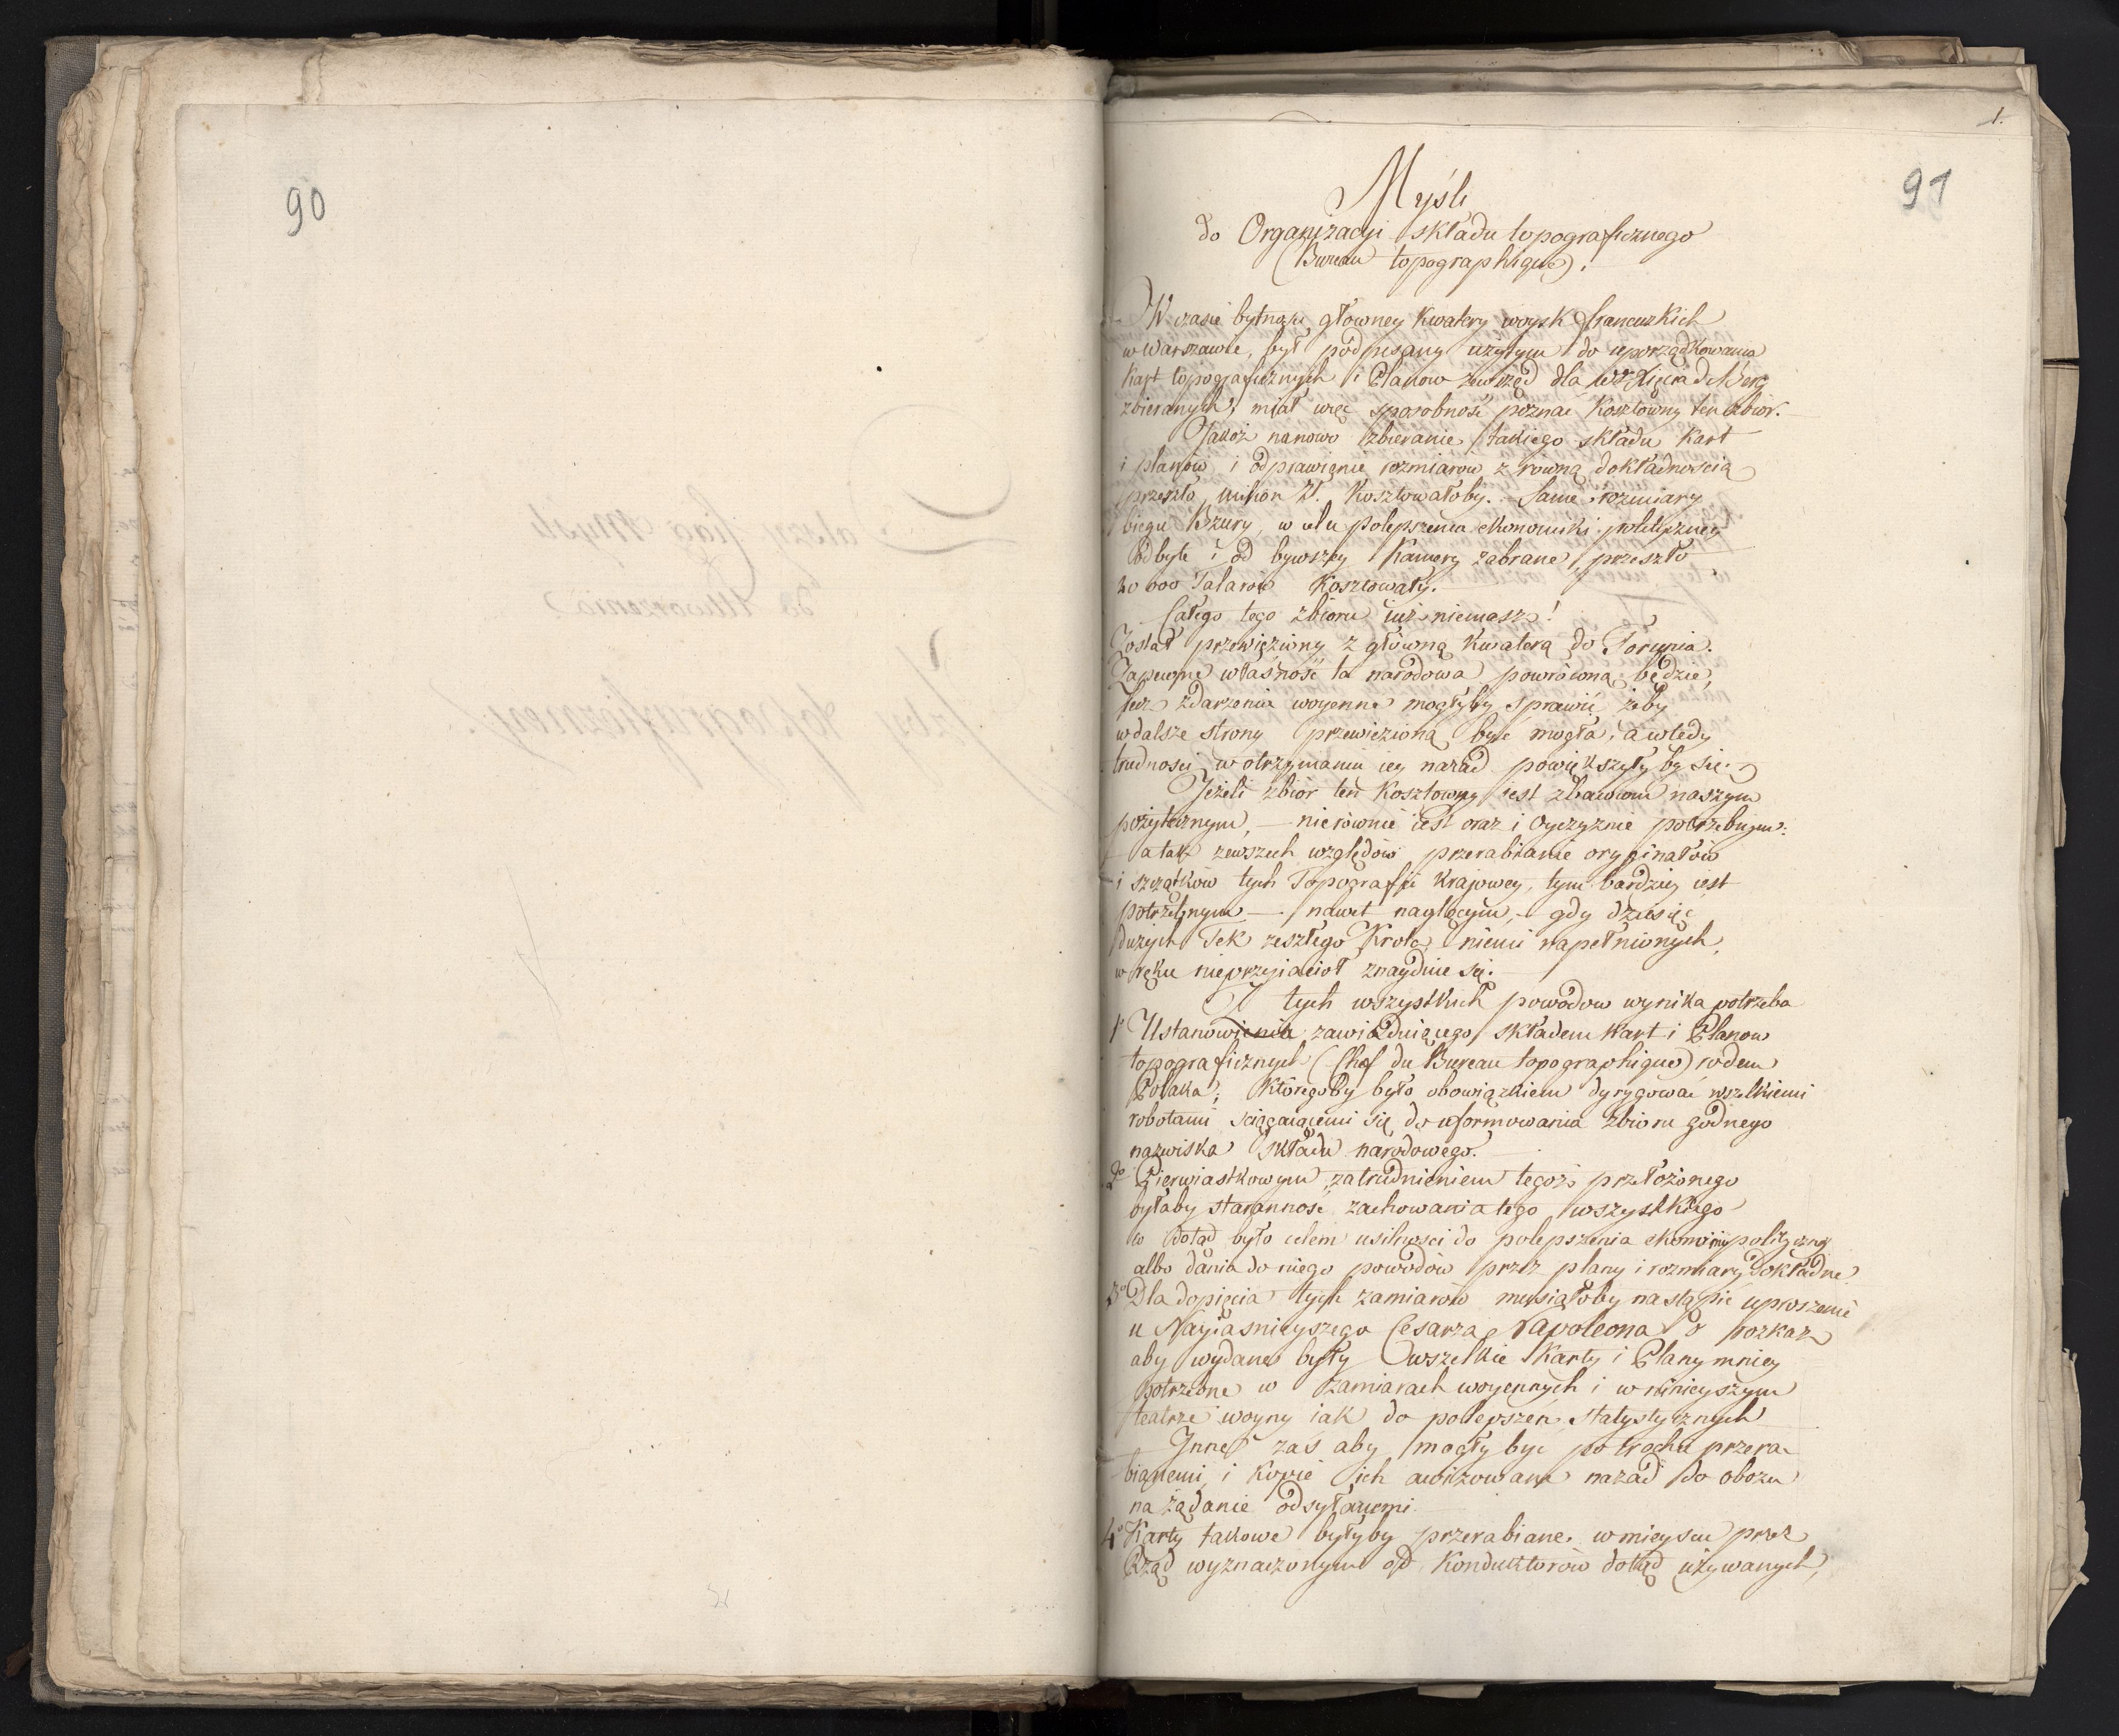 90
1.
91
Myśli
do Organizacji składu topograficznego
(Bureau topographique).
W czasie bytności główney Kwatery woysk francuzkich
w Warszawie, był podpisany użytym do uporządkowania
Kart topograficznych i Planow zewsząd dla WXięcia de Berg
zbieranych, miał więc sposobność poznać Kosztowny ten zbiór.
Jakoż nanowo zbieranie takiego składu Kart
i planow i odprawienie rozmiarow z rowną dokładnością
przeszło milion Zł. Kosztowałoby. Same rozmiary
biegu Bzury, w celu polepszenia ekonomiki polityczney
odbyte i od bywszey Kamery zabrane, przeszło
20 000 Talarow Kosztowały.
Całego tego zbioru iuż niemasz!
Został przewieziony z główną Kwaterą do Torunia.
Zapewne właśność ta narodowa powrócona będzie,
lecz zdarzenia woyenne mogłyby sprawić żeby
w dalsze strony przewieziona być mogła, a wtedy
trudności w otrzymaniu iey nazad powiększyłyby się.
Jeżeli zbiór ten Kosztowny iest zbawcom naszym
pożytecznym, — nierównie iest oraz i Oyczyznie potrzebnym:
a tak zewszech względów przerabianie oryginałów
i szczątków tych Topografii Krajowey, tym bardziey iest
potrzebnym — nawet naglącym, — gdy dziesięć
dużych Tek zeszłego Krola niemi napełnionych,
w ręku nieprzyiacioł znayduie się.
Z tych wszystkich powodow wynika potrzeba
1o Ustanowienia zawiaduiącego składem Kart i Planow
topograficznych (Chef du Bureau topographique) rodem
Polaka, Któregoby było obowiązkiem dyrygować wszelkiemi
robotami sciągaiącemi się do uformowania zbioru godnego
nazwiska składu narodowego.
2o Pierwiastkowym zatrudnieniem tegoż przełożonego
byłaby staranność zachowania tego wszystkiego
co dotąd było celem usilności do polepszenia ekonomii polityczney
albo dania do niego powodów przez plany i rozmiary dokładne.
3o Dla dopięcia tych zamiarow musiałoby nastąpić uproszenie
u Nayiasnieyszego Cesarza Napoleona o rozkaz
aby wydane były wszelkie Karty i Plany mniey
potrzebne w zamiarach woyennych i w ninieyszym
teatrze woyny iak do polepszeń statystycznych
Inne zaś aby mogły być po trochu przera-
bianemi, i Kopie ich awizowane nazad do obozu
na żądanie odsyłanemi.
4o Karty takowe byłyby przerabiane w mieyscu przez
Rząd wyznaczonym od Konduktorow dotąd używanych,